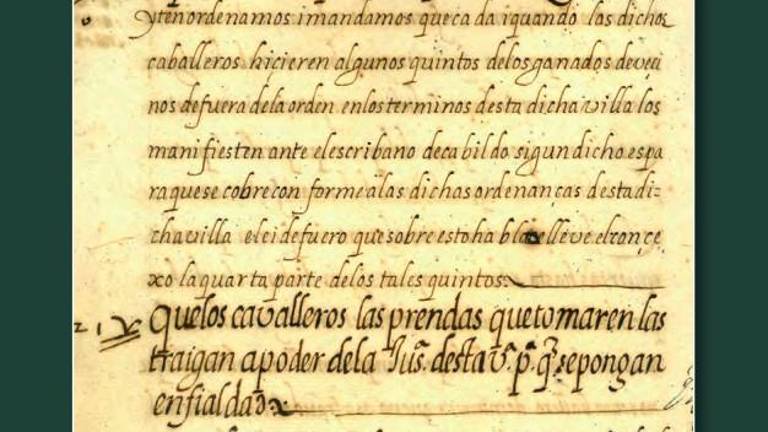 yten ordenamos i mandamos que cada i quando los dichos
caballeros hicieren algunos quintos de los ganados de veci
nos de fuera de la orden en los terminos desta dicha villa los
manifiesten ante el escribano de cabildo sigun dicho es pa
ra que se cobre conforme a las dichas ordenanças desta di-
cha villa e lei de fuero que sobre esto habla e lleve el conçe
xo la quarta parte de los tales quintos.
21 Que los cavalleros las prendas que tomaren las
traigan a poder de la Jusª. desta vª. pª. q̃. se pongan
en fialdad